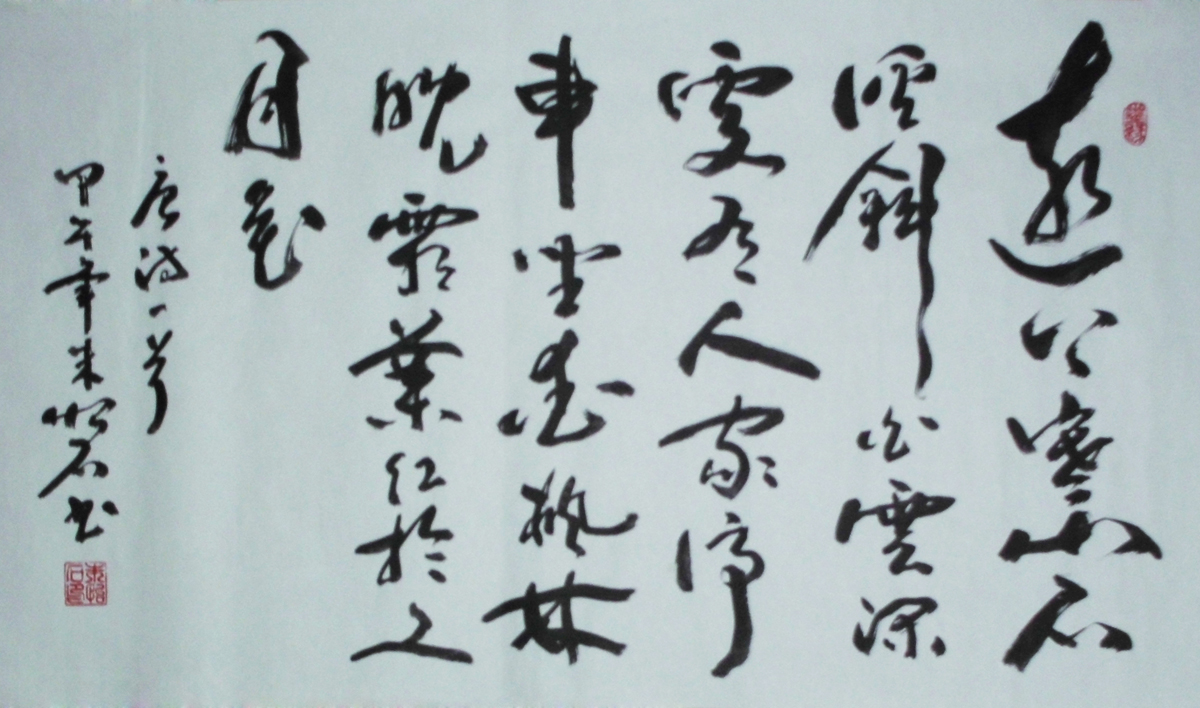 遠上寒山石
徑斜白雲深
處有人家停
車坐愛楓林
晚霜葉紅於二
月花
唐詩一首
甲午年朱石書